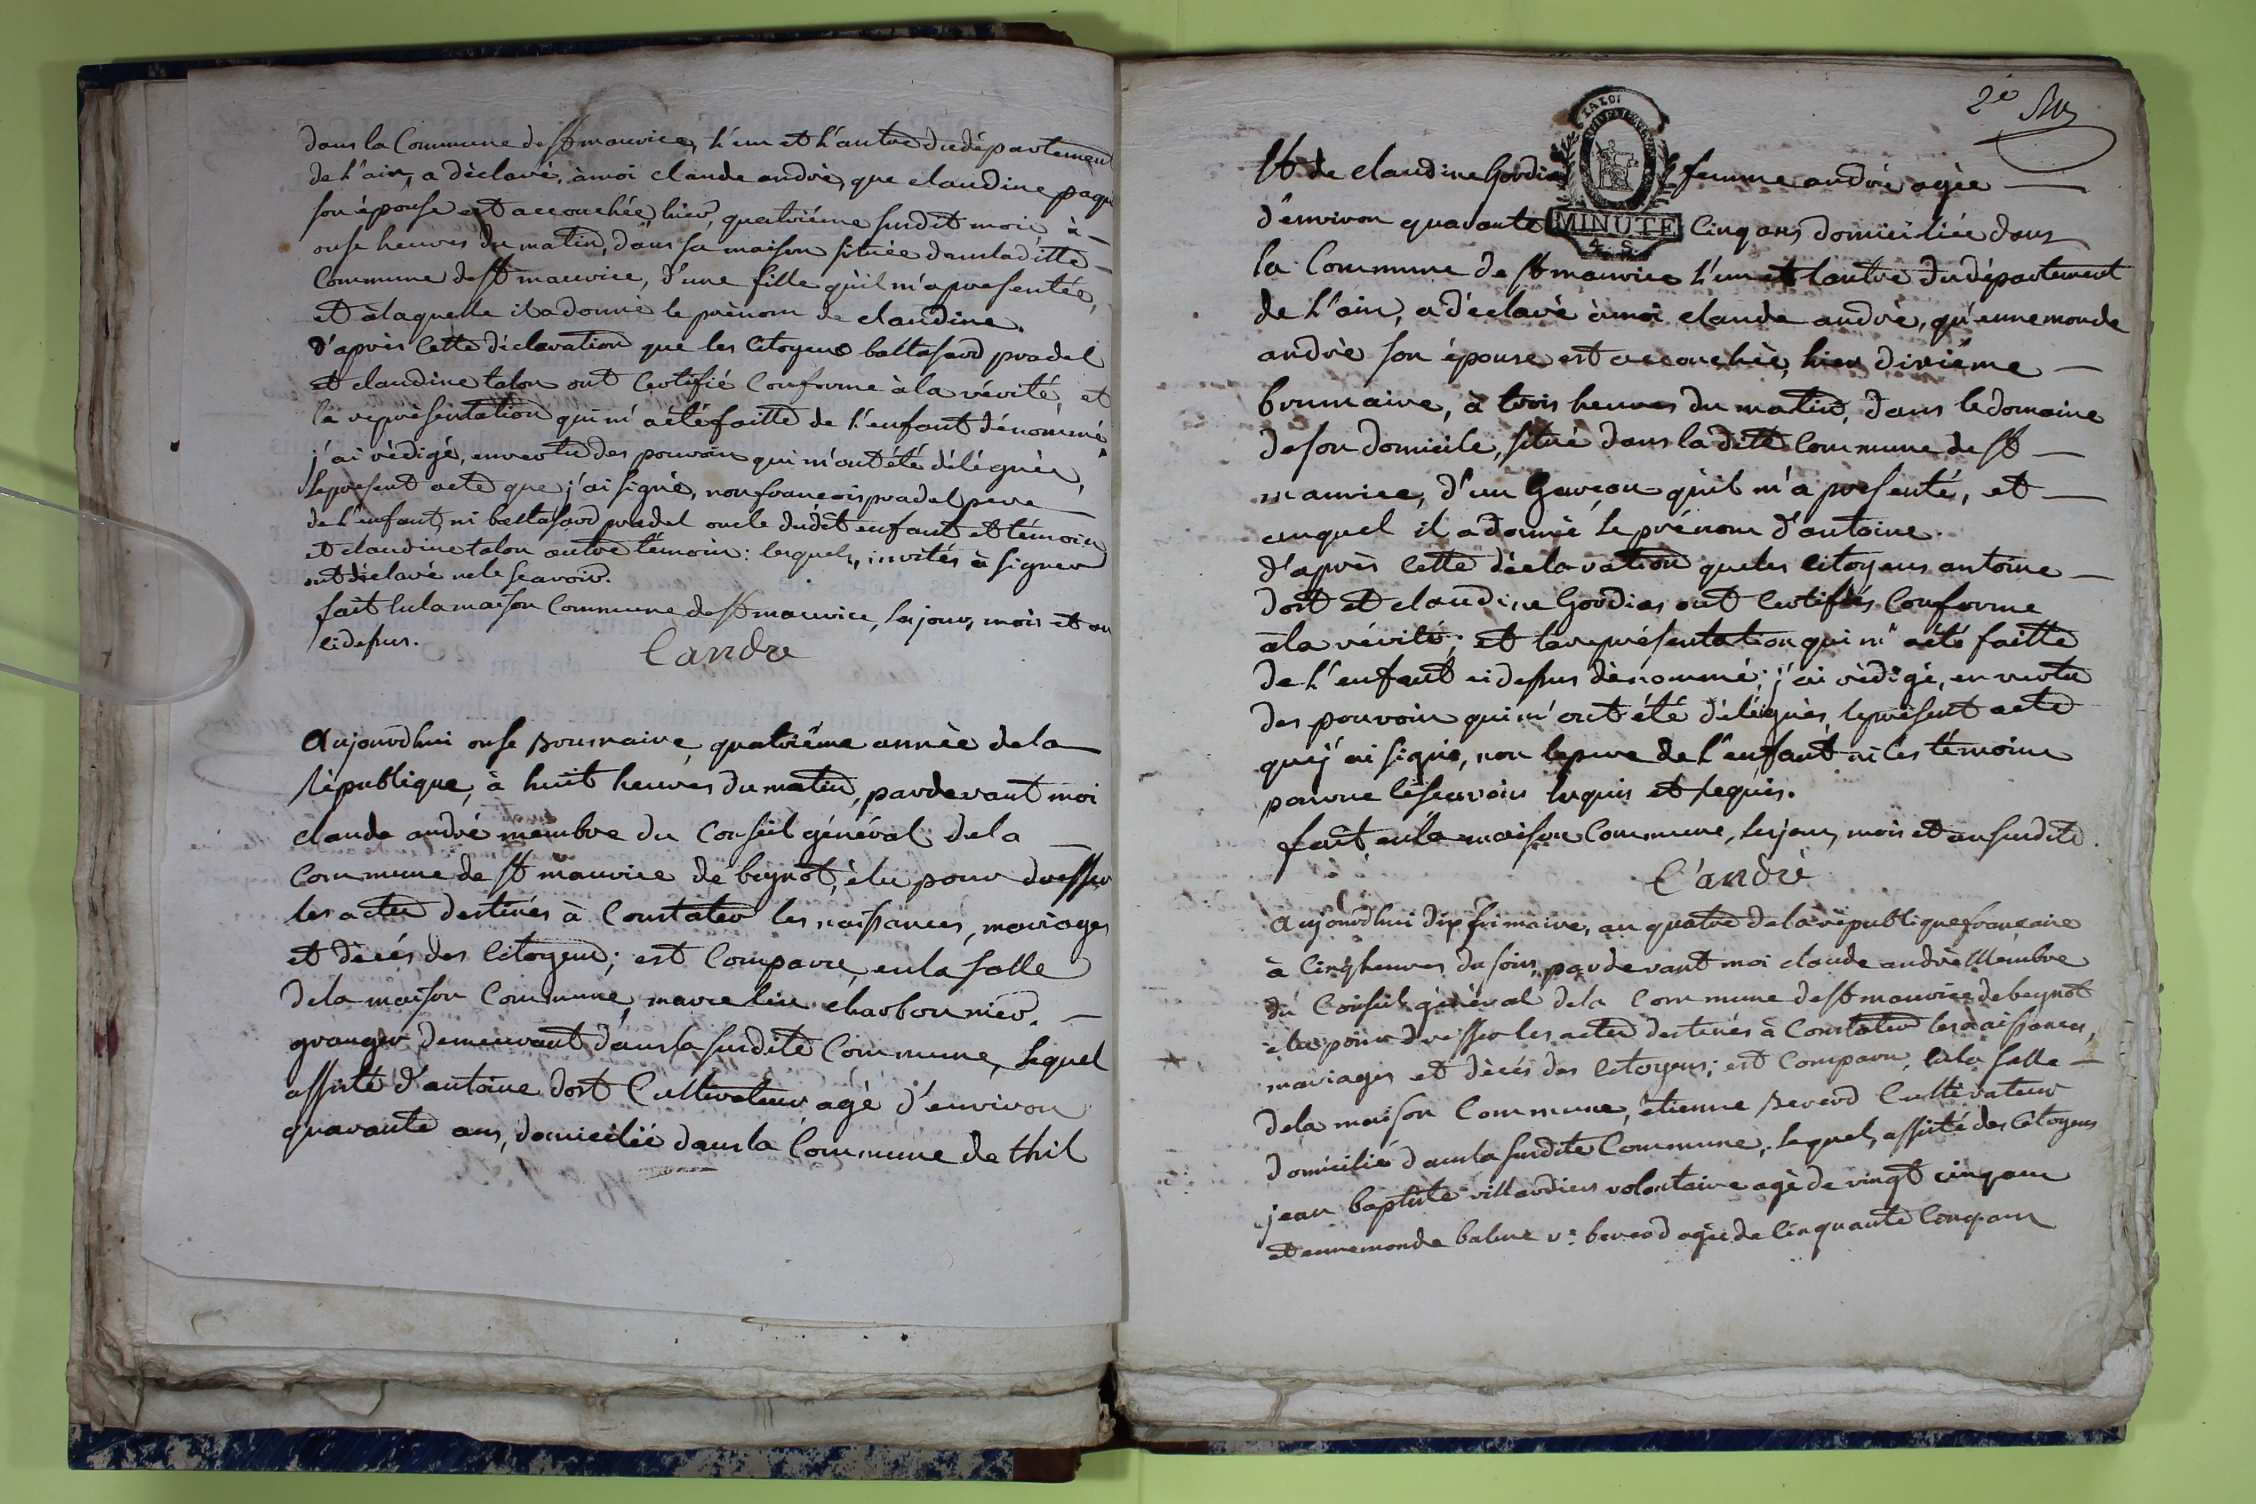 dans la Commune de St maurice, l'un et l'autre du département
de l'ain, a déclaré, à moi claude andré, que claudine paqu
son épouse est accouchée, hier, quatriéme susdit mois, à
onse heures du matin, dans sa maison située dans laditte
Commune de St maurice, d'une fille qu'il m'a presentée,
et à laquelle il a donné le prènom de claudine.
d'après Cette déclaration que les Citoyens baltasard pradel
et claudine talon ont Certifié Conforme à la vérité, et
la représentation qui m'a été faitte de l'enfant dénommé
j'ai rèdigé, en vertu des pouvoirs qui m'ont été délégués,
le présent acte que j'ai signé, non francois pradel pere
de l'enfant, ni baltasard pradel oncle dudit enfant et témoin
et claudine talon autre témoin: lesquels, invités à signer
ont déclaré ne le scavoir.
fait en la maison Commune de St maurice, les jour, mois et an
ci dessus.
C andre
Aujourdhui onse Brumaire, quatriéme année de la
république, à huit heures du matin, pardevant moi
claude andré membre du Conseil général de la
Commune de St maurice de beynot, élu pour dresser
les actes destinés à Constater les naissances, mariages
et décés des Citoyens; est Comparu, en la salle
de la maison Commune, marcelin charbonnier,
granger demeurant dans la susdite Commune, lequel
assisté d'antoine dost Cultivateur agé d'environ
quarante ans, domicilié dans la Commune de thil
2e
Et de claudine Gordia femme andré agée
LA LOI
MINUTE
4. S.
d'environ quarante Cinq ans domiciliée dans
la Commune de St maurice l'un et l'autre du département
de l'ain, a déclaré à moi claude andré, qu'ennemonde
andré son épouse est accouchée, hier dixiéme
brumaire, à trois heures du matin, dans le domaine
de son domicile, situé dans la dite Commune de St
maurice, d'un Garcon qu'il m'a presenté, et
auquel il a donné le prénom d'antoine.
d'après Cette déclaration que les citoyens antoine
dost et claudine Gordias ont Certifiés Conforme
à la vérité; et la représentation qui m'a été faitte
de l'enfant ci dessus dénommé; j'ai rèdigé, en vertu
des pouvoirs qui m'ont été délégués, le présent acte
que j'ai signé, non le pere de l'enfant ni les témoins
pour ne le scavoir enquis et requis.
fait en la maison Commune, les jour, mois et an susdits.
C andré
Aujourdhui dix frimaire, an quatre de la république francaise
à Cinq heures du soir, pardevant moi claude andré Membre
du Conseil général de la Commune de St maurice de beynot
élu pour dresser les actes destinés à Constater les naissances,
mariages et décés des Citoyens; est Comparu, en la salle
de la maison Commune, étienne Berard Cultivateur
domicilié dans la susdite Commune, lequel, assisté des Citoyens
jean baptiste villardier volontaire agé de vingt cinq ans
et ennemonde balme ve berard agée de Cinquante Cinq ans